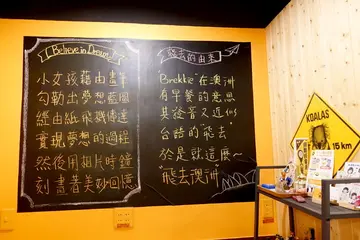 Believe in Dream
小女孩藉由畫筆
勾勒出夢想藍圖
經由紙飛機傳達
實現夢想的過程
然後用相片時鐘
刻畫著美好回憶
飛去的由來
Brekkie 在澳洲
有早餐的意思
其發音又近似
台語的飛去
於是就這麼~
飛去澳洲
KOALAS
15 km